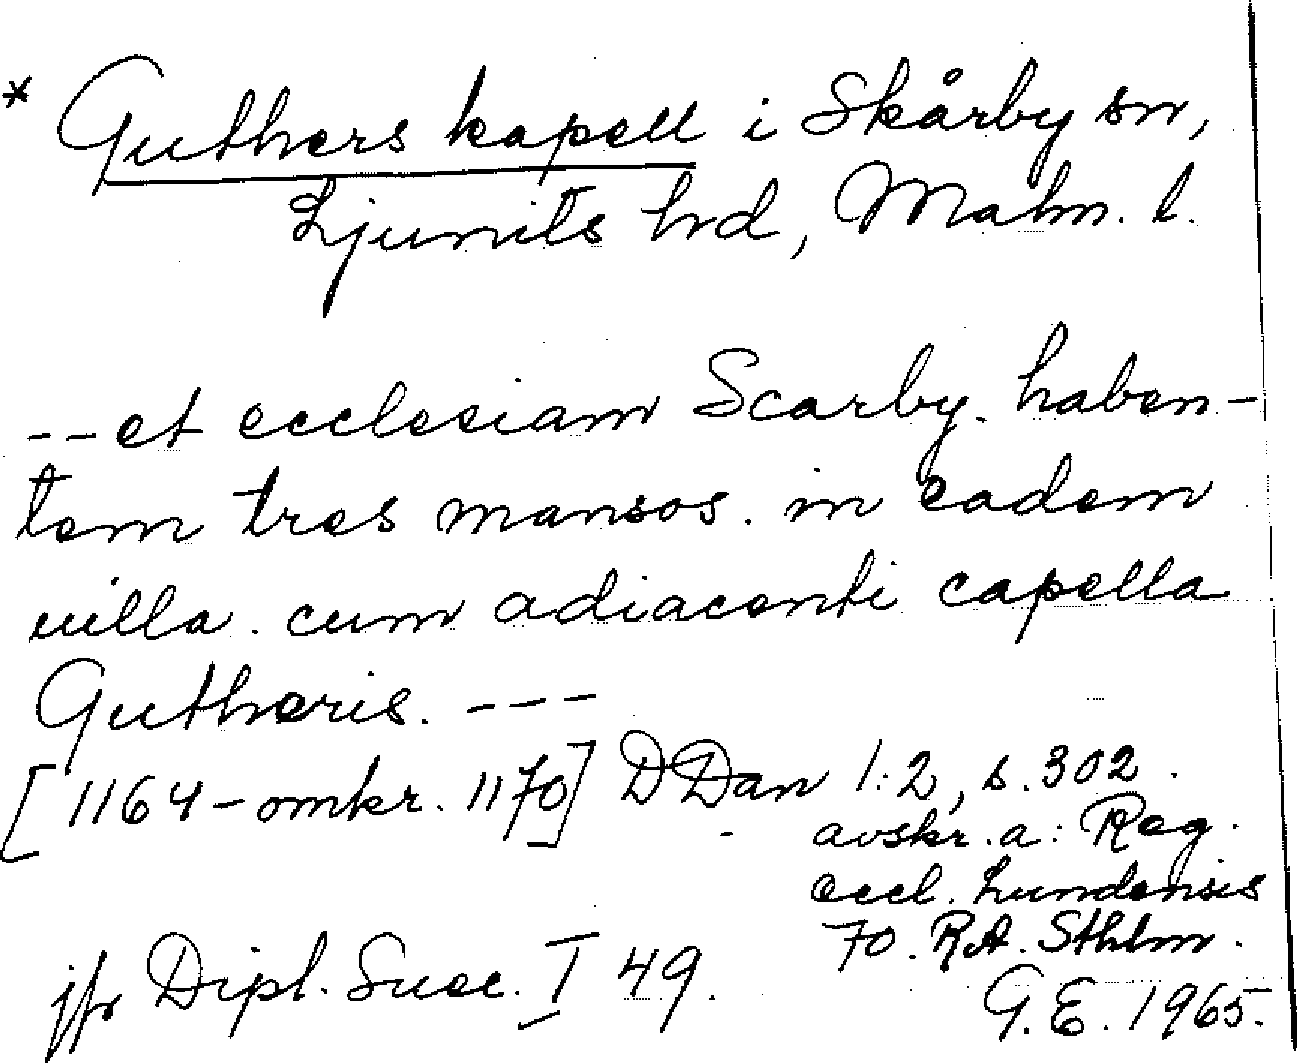 * Guthers kapell i Skårby sn,
Ljunits hrd, Malm. l.
--et ecclesiam Scarby. haben-
tem tres mansos. in eadem
uilla. cum adiacenti capella
Gutheris. ---
[1164-omkr. 1170] DDan 1:2, s. 302.
avskr. a: Reg.
eccl. Lundensis
70. RA. Sthlm.
jfr Dipl. Suec. I 49.
G.E. 1965.